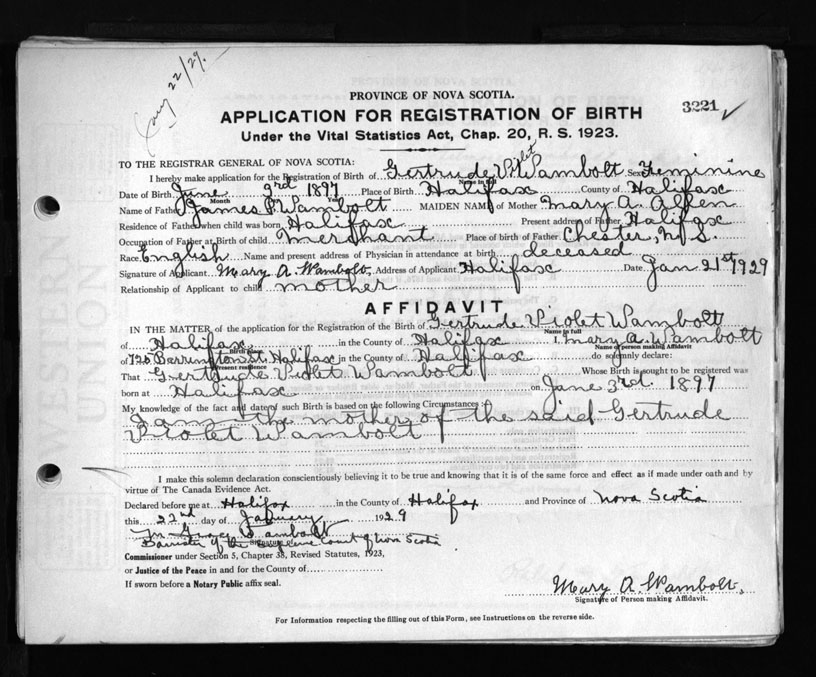 Jany 22/29.
PROVINCE OF NOVA SCOTIA.
3221 ✓
APPLICATION FOR REGISTRATION OF BIRTH
Under the Vital Statistics Act, Chap. 20, R. S. 1923.
TO THE REGISTRAR GENERAL OF NOVA SCOTIA:
I hereby make application for the Registration of Birth of Gertrude Violet Wambolt Sex Feminine
Name in full
Date of Birth June 3rd 1897 Place of Birth Halifax County of Halifax
Month Year
Name of Father James P. Wambolt MAIDEN NAME of Mother Mary A. Allen
Residence of Father when child was born Halifax Present address of Father Halifax
Occupation of Father at Birth of child merchant Place of birth of Father Chester, N.S.
Race English Name and present address of Physician in attendance at birth deceased
Signature of Applicant Mary A. Wambolt, Address of Applicant Halifax Date Jan 21st 1929
Relationship of Applicant to child mother
AFFIDAVIT
IN THE MATTER of the application for the Registration of the Birth of Gertrude Violet Wambolt
Name in full
of Halifax in the County of Halifax I, Mary A. Wambolt
Birth place Name of person making Affidavit
of Barrington St. Halifax in the County of Halifax do solemnly declare:
Present residence
That Gertrude Violet Wambolt Whose Birth is sought to be registered was
born at Halifax on June 3rd 1897
My knowledge of the fact and date of such Birth is based on the following Circumstances:
I am the mother of the said Gertrude
Violet Wambolt
I make this solemn declaration conscientiously believing it to be true and knowing that it is of the same force and effect as if made under oath and by
virtue of The Canada Evidence Act.
Declared before me at Halifax in the County of Halifax and Province of Nova Scotia
this 22nd day of January 1929
Wambolt
Barrister of the Supreme Court of Nova Scotia
Signature of
Commissioner under Section 5, Chapter 38, Revised Statutes, 1923,
or Justice of the Peace in and for the County of
If sworn before a Notary Public affix seal.
Mary A. Wambolt,
Signature of Person making Affidavit.
For Information respecting the filling out of this Form, see Instructions on the reverse side.
WESTERN
UNION